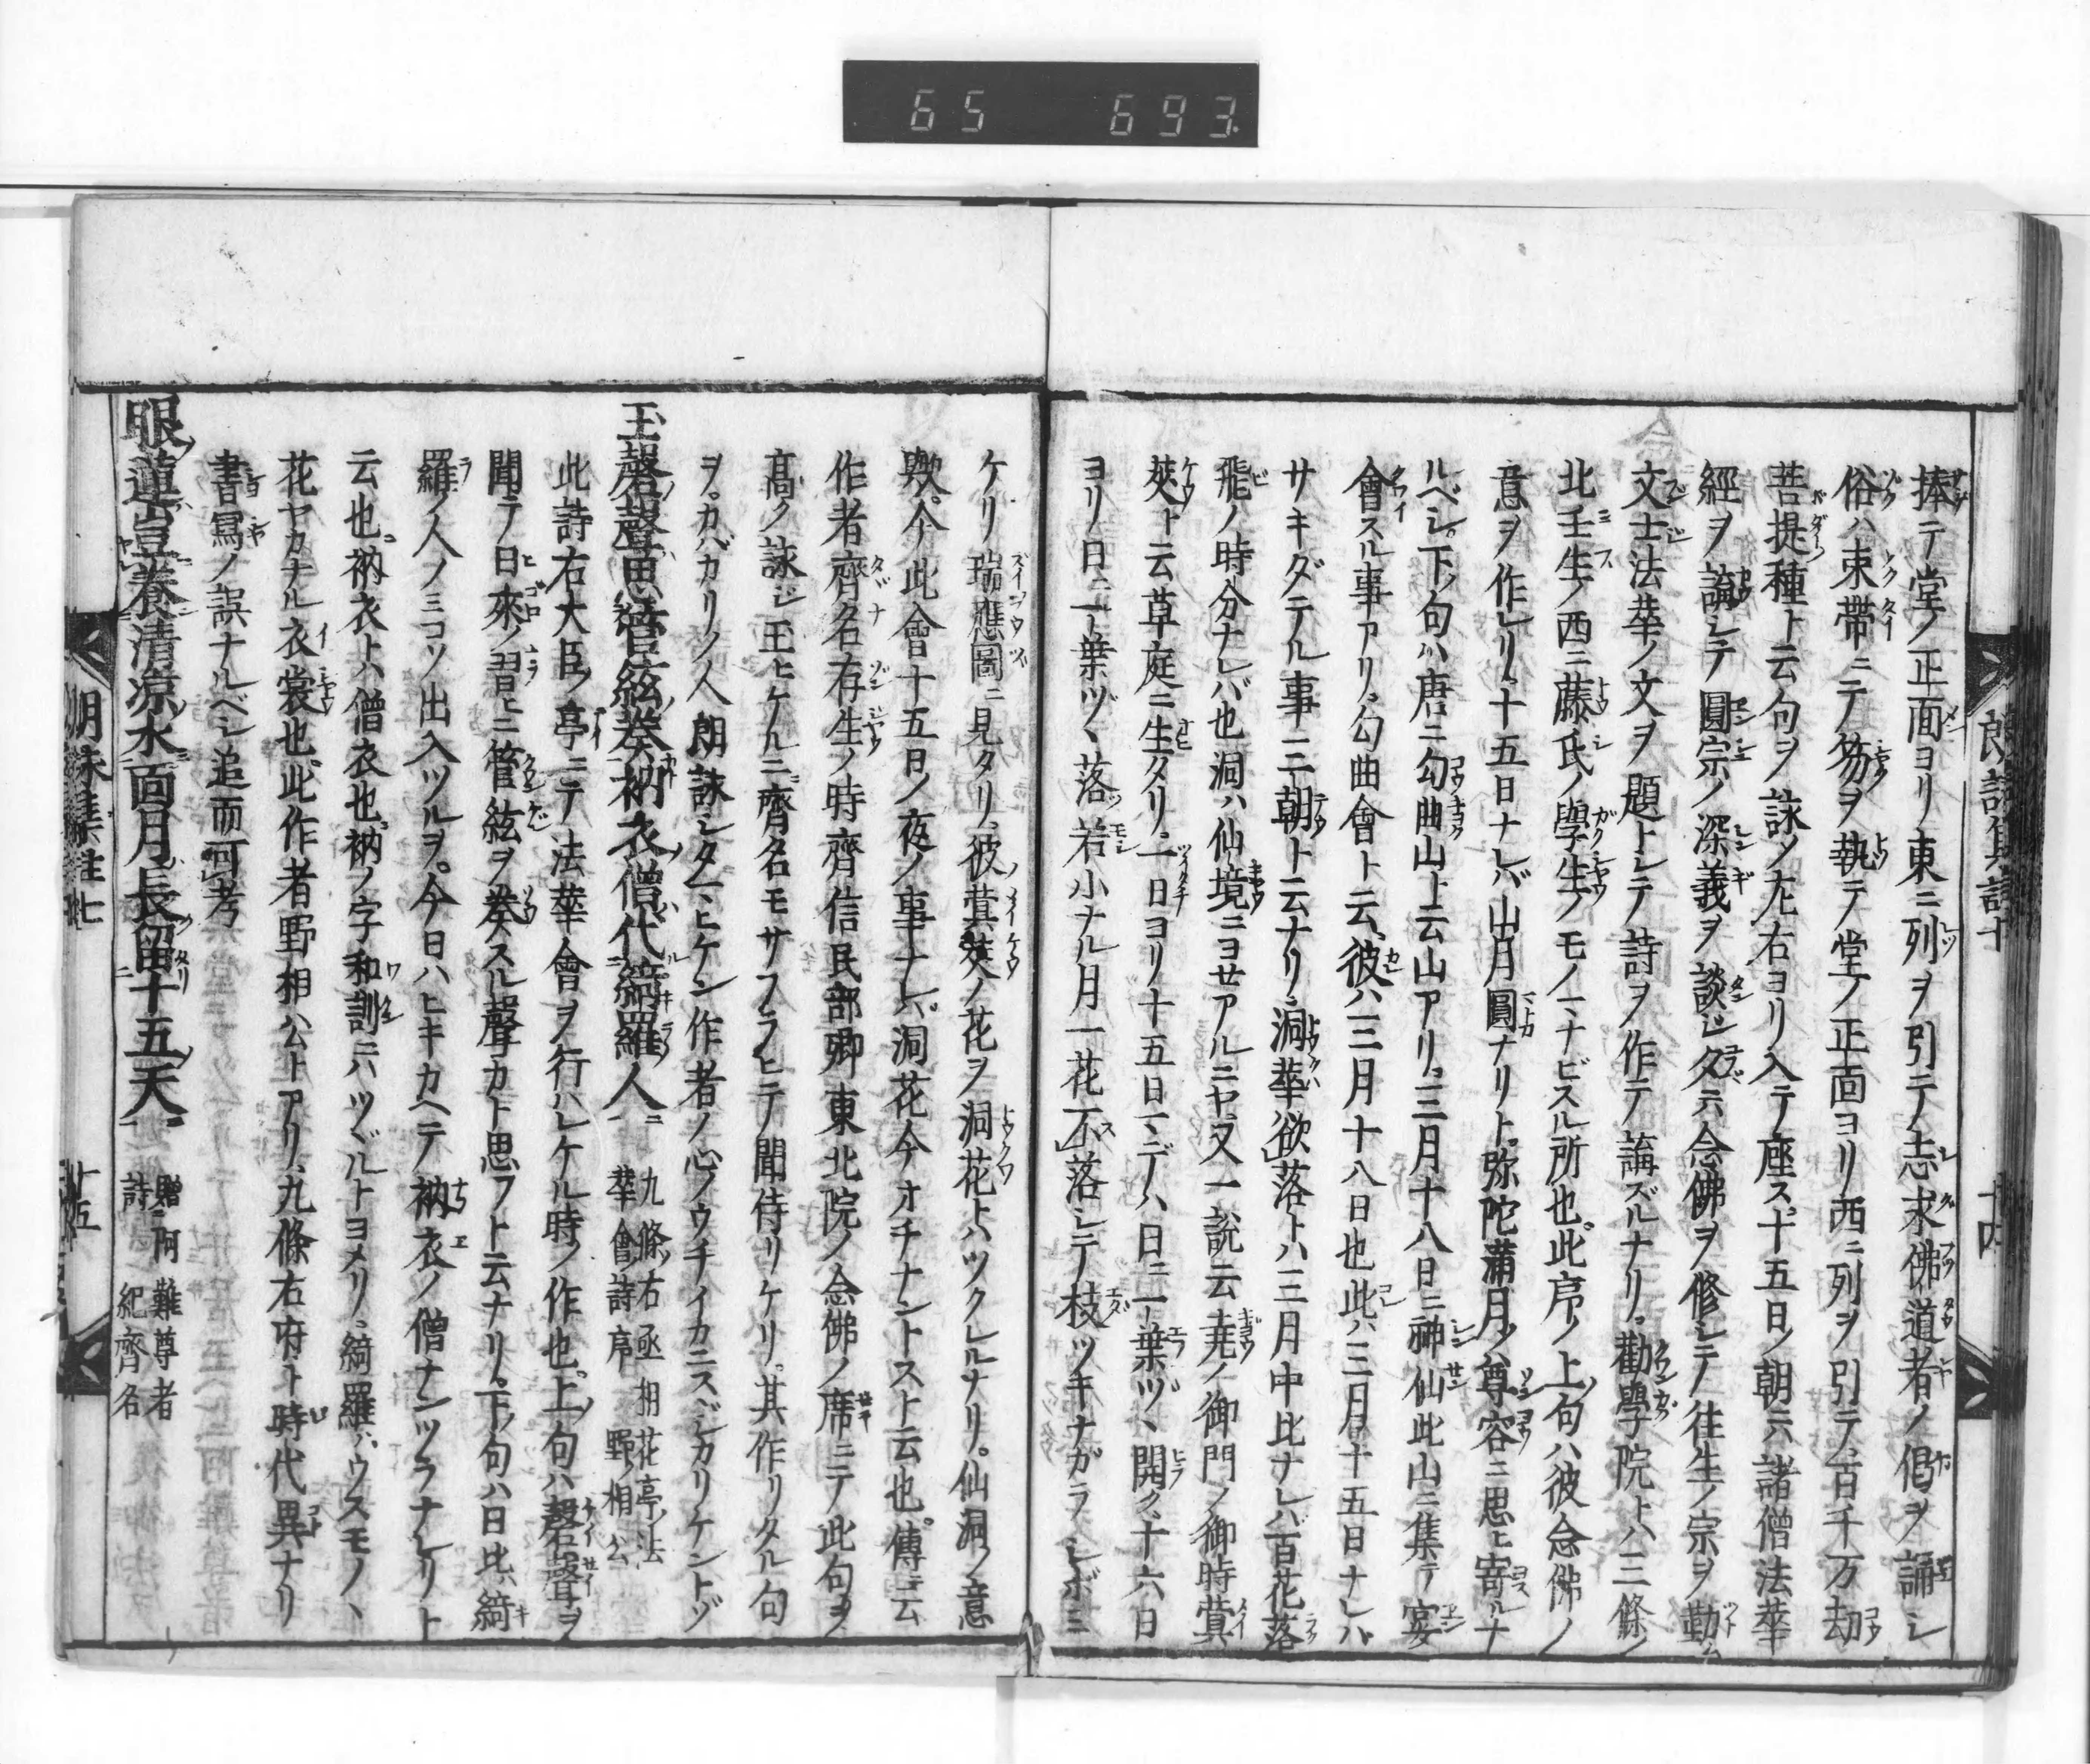 65 693
捧テ堂ノ正面ヨリ東ニ列ヲ引テ志求佛道者ノ偈ヲ誦シ
俗ハ束帶ニテ笏ヲ執テ堂ノ正面ヨリ西ニ列ヲ引テ百千万劫
菩提種ト云句ヲ詠ノ左右ヨリ入テ座ス十五日ノ朝ニハ諸僧法華
經ヲ論シテ圓宗ノ深義ヲ談シ夕ニハ念佛ヲ修シテ往生ノ宗ヲ勤ム
文士法華ノ文ヲ題トシテ詩ヲ作テ講ズルナリ勸學院トハ三條ノ
北壬生ノ西ニ藤氏ノ學生ノモノマナビスル所也此序ノ上句ハ彼念佛ノ
意ヲ作レリ十五日ナレバ山月圓ナリト弥陀滿月ノ尊容ニ思ヒ寄ルナ
ルベシ下ノ句ハ唐ニ勾曲山ト云山アリ三月十八日ニ神仙此山ニ集テ宴
會スル事アリ勾曲會ト云彼ハ三月十八日也此ハ三月十五日ナレハ
サキダテル事三朝ト云ナリ洞華欲落トハ三月中比ナレバ百花落
飛ノ時分ナレバ也洞ハ仙境ニヨセアルニヤ又一説云堯ノ御門ノ御時蓂
莢ト云草庭ニ生タリ一日ヨリ十五日マデハ日ニ一葉ヅヽ開ク十六日
ヨリノ日ニ一葉ヅヽ落若小ナル月一花不落シテ枝ツキナガラシボミ
朗詠集註十
ケリ瑞應圖ニ見タリ彼蓂莢ノ花ヲ洞花トハツクレルナリ仙洞ノ意
歟今此會十五日ノ夜ノ事ナレバ洞花今オチナントスト云也傳云
作者齊名存生ノ時齊信民部卿東北院ノ念佛ノ席ニテ此句ヲ
高ク詠シ玉ヒケルニ齊名モサフラヒテ聞侍リケリ其作リタル句
ヲカバカリノ人朗詠シタマヒケン作者ノ心ノウチイカニスヾシカリケントゾ
玉磬聲思管絃奏衲衣僧代綺羅人 九條右丞相花亭ノ法華會詩序 野相公
此詩右大臣ノ亭ニテ法華會ヲ行ハレケル時ノ作也上ノ句ハ磬聲ヲ
聞テ日來ノ習ヒニ管絃ヲ奏スル聲カト思フト云ナリ下ノ句ハ日比綺
羅ノ人ノミコソ出入ツルヲ今日ハヒキカヘテ衲衣ノ僧ナンツラナレリト
云也衲衣トハ僧衣也衲ノ字和訓ニハツヾルトヨメリ綺羅ハウスモノヽ
花ヤカナル衣裳也此作者野相公トアリ九條右府ト時代異ナリ
書寫ノ誤ナルベシ追而可考
眼蓮豈養清凉水面月長留十五天 贈阿難尊者詩 紀齊名
朗詠集註七
十五